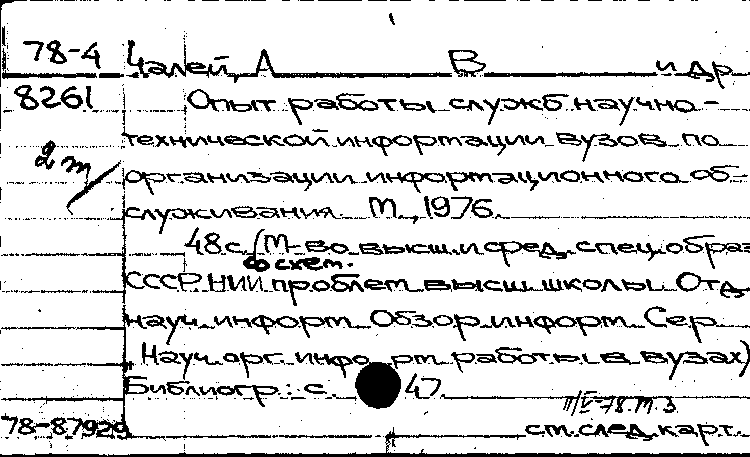 78-4 Чалей, А В и др
8261 Опыт работы служб научно-
технической информации вузов по
2 m
организации информационного об-
служивания. М., 1976.
48 с. (М-во высш. и сред. спец. образ
со схем.
СССР. НИИ проблем высш. школы. Отд
науч. информ. Обзор. информ. Сер
"Науч. орг. информ работы в вузах)
Библиогр.: с. 47.
78-87929 см. след. карт.